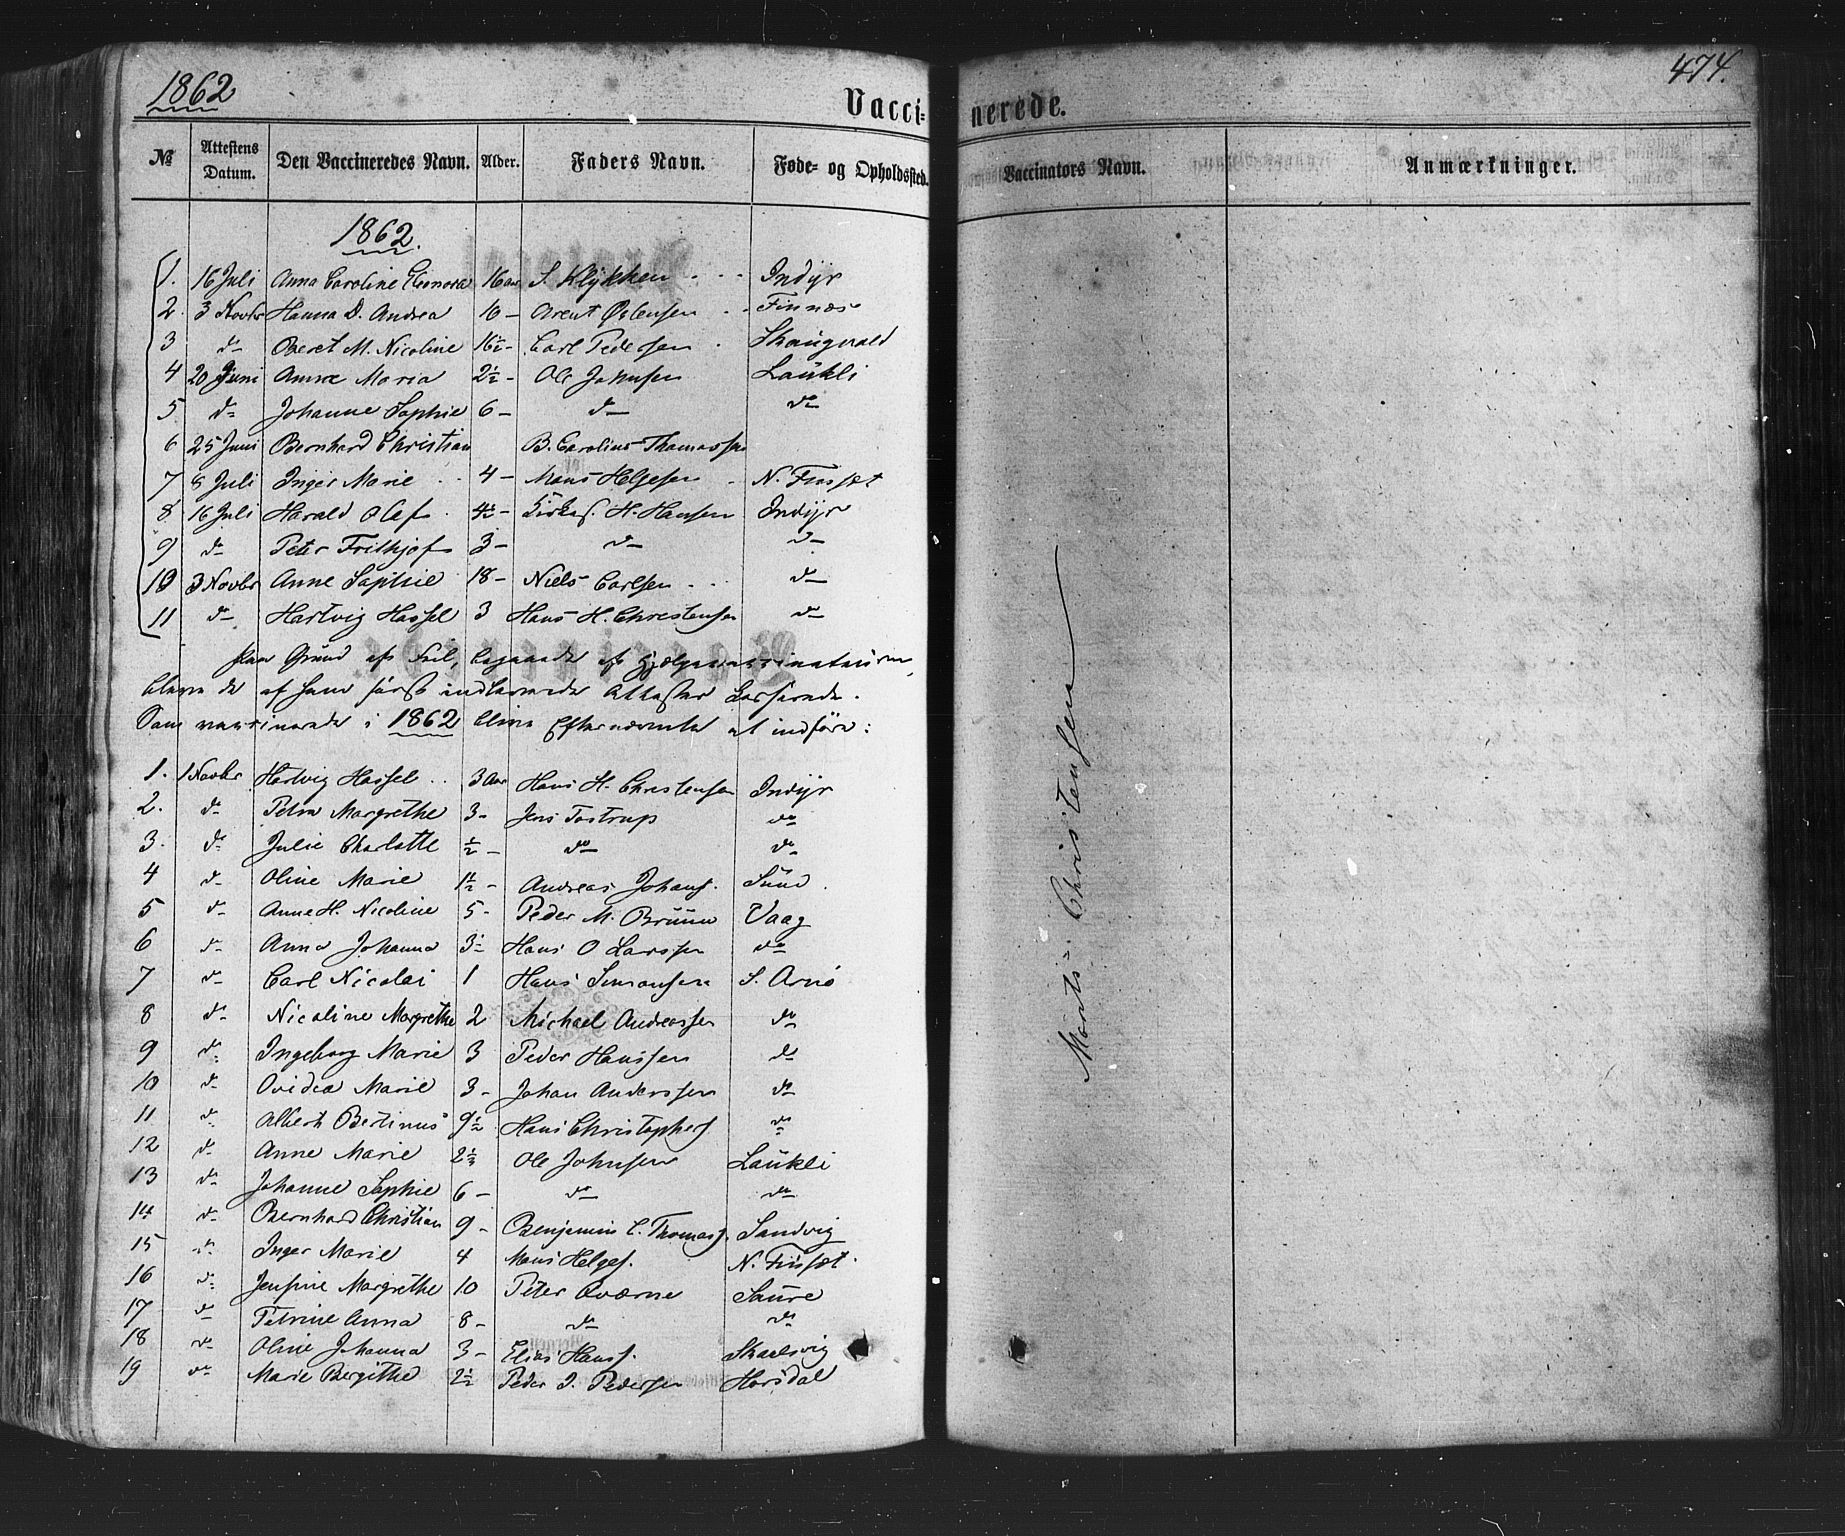 1862
474.
Vaccinerede.
No Attestens Datum. Den Vaccineredes Navn. Alder. Faders Navn. Føde- og Opholdssted. Vaccinators Navn. Anmærkninger.
1862.
1. 16 Juli Anna Caroline Eleonora 16 aar S. Klykken Indyr
2. 3 Novbr Hanna D. Andrea 10 - Arent Østensen Finnæs
3 do Beret M. Nicoline 16½ - Carl Pedersen Skaugvold
4 20 Juni Anna Maria 2½ - Ole Johnsen Laukli
5 do Johanne Sophie 6 - do do
6 25 Juni Bernhard Christian B. Carolius Thomassen
7 8 Juli Inger Marie 4 - Mons Helgesen N. Finsæt
8 16 Juli Harald Olaf 4½ - Kirkes. H. Hansen Indyr
9 do Peter Frithjof 3 - do do
10 3 Novbr Anne Sophie 18 - Niels Carlsen do
11 do Hartvig Hassel 3 Hans H. Christensen do
Paa Grund af Feil, begaaede af Hjelpevaccinateuren,
bleve de af ham først indleverede Attester
Som vaccinerede i 1862 bleve Efternævnte at indføre:
1. 1 Novbr Hartvig Hassel 3 Aar Hans H. Christensen Indyr
2. do Petra Margrethe 3 - Jens Tostrup do
3. do Julie Charlotte ½ - do do
4 do Oline Marie 1½ - Andreas Johans. Sund
5 do Anne H. Nicoline 5 - Peder M. Bruun Vaag
6 do Anna Johanna 3½ Hans O Larssen do
7 do Carl Nicolai 1 Hans Simonsen S. Arnø
8 do Nicoline Margrethe 2 Michael Andreassen do
9 do Ingeborg Marie 3 Peder Hanssen do
10 do Ovidea Marie 3 - Johan Anderssen do
11 do Albert Bertinus 9½ Hans Christophers do
12 do Anne Marie 2½ Ole Johnsen Laukli
13 do Johanne Sophie 6 - do do
14 do Bernhard Christian 9 - Benjamin C. Thomas. Sandvig
15 do Inger Marie 4 Mons Helges. N. Finsæt.
16 do Jensine Margrethe 10 Peter Qværne Saure
17 do Petrine Anna 8 - do do
18 do Oline Johanna 3 - Elias Hans. Skaelsvig
19 do Marie Bergithe 2½ Peder J. Pedersen Horsdal
Morits Christensen